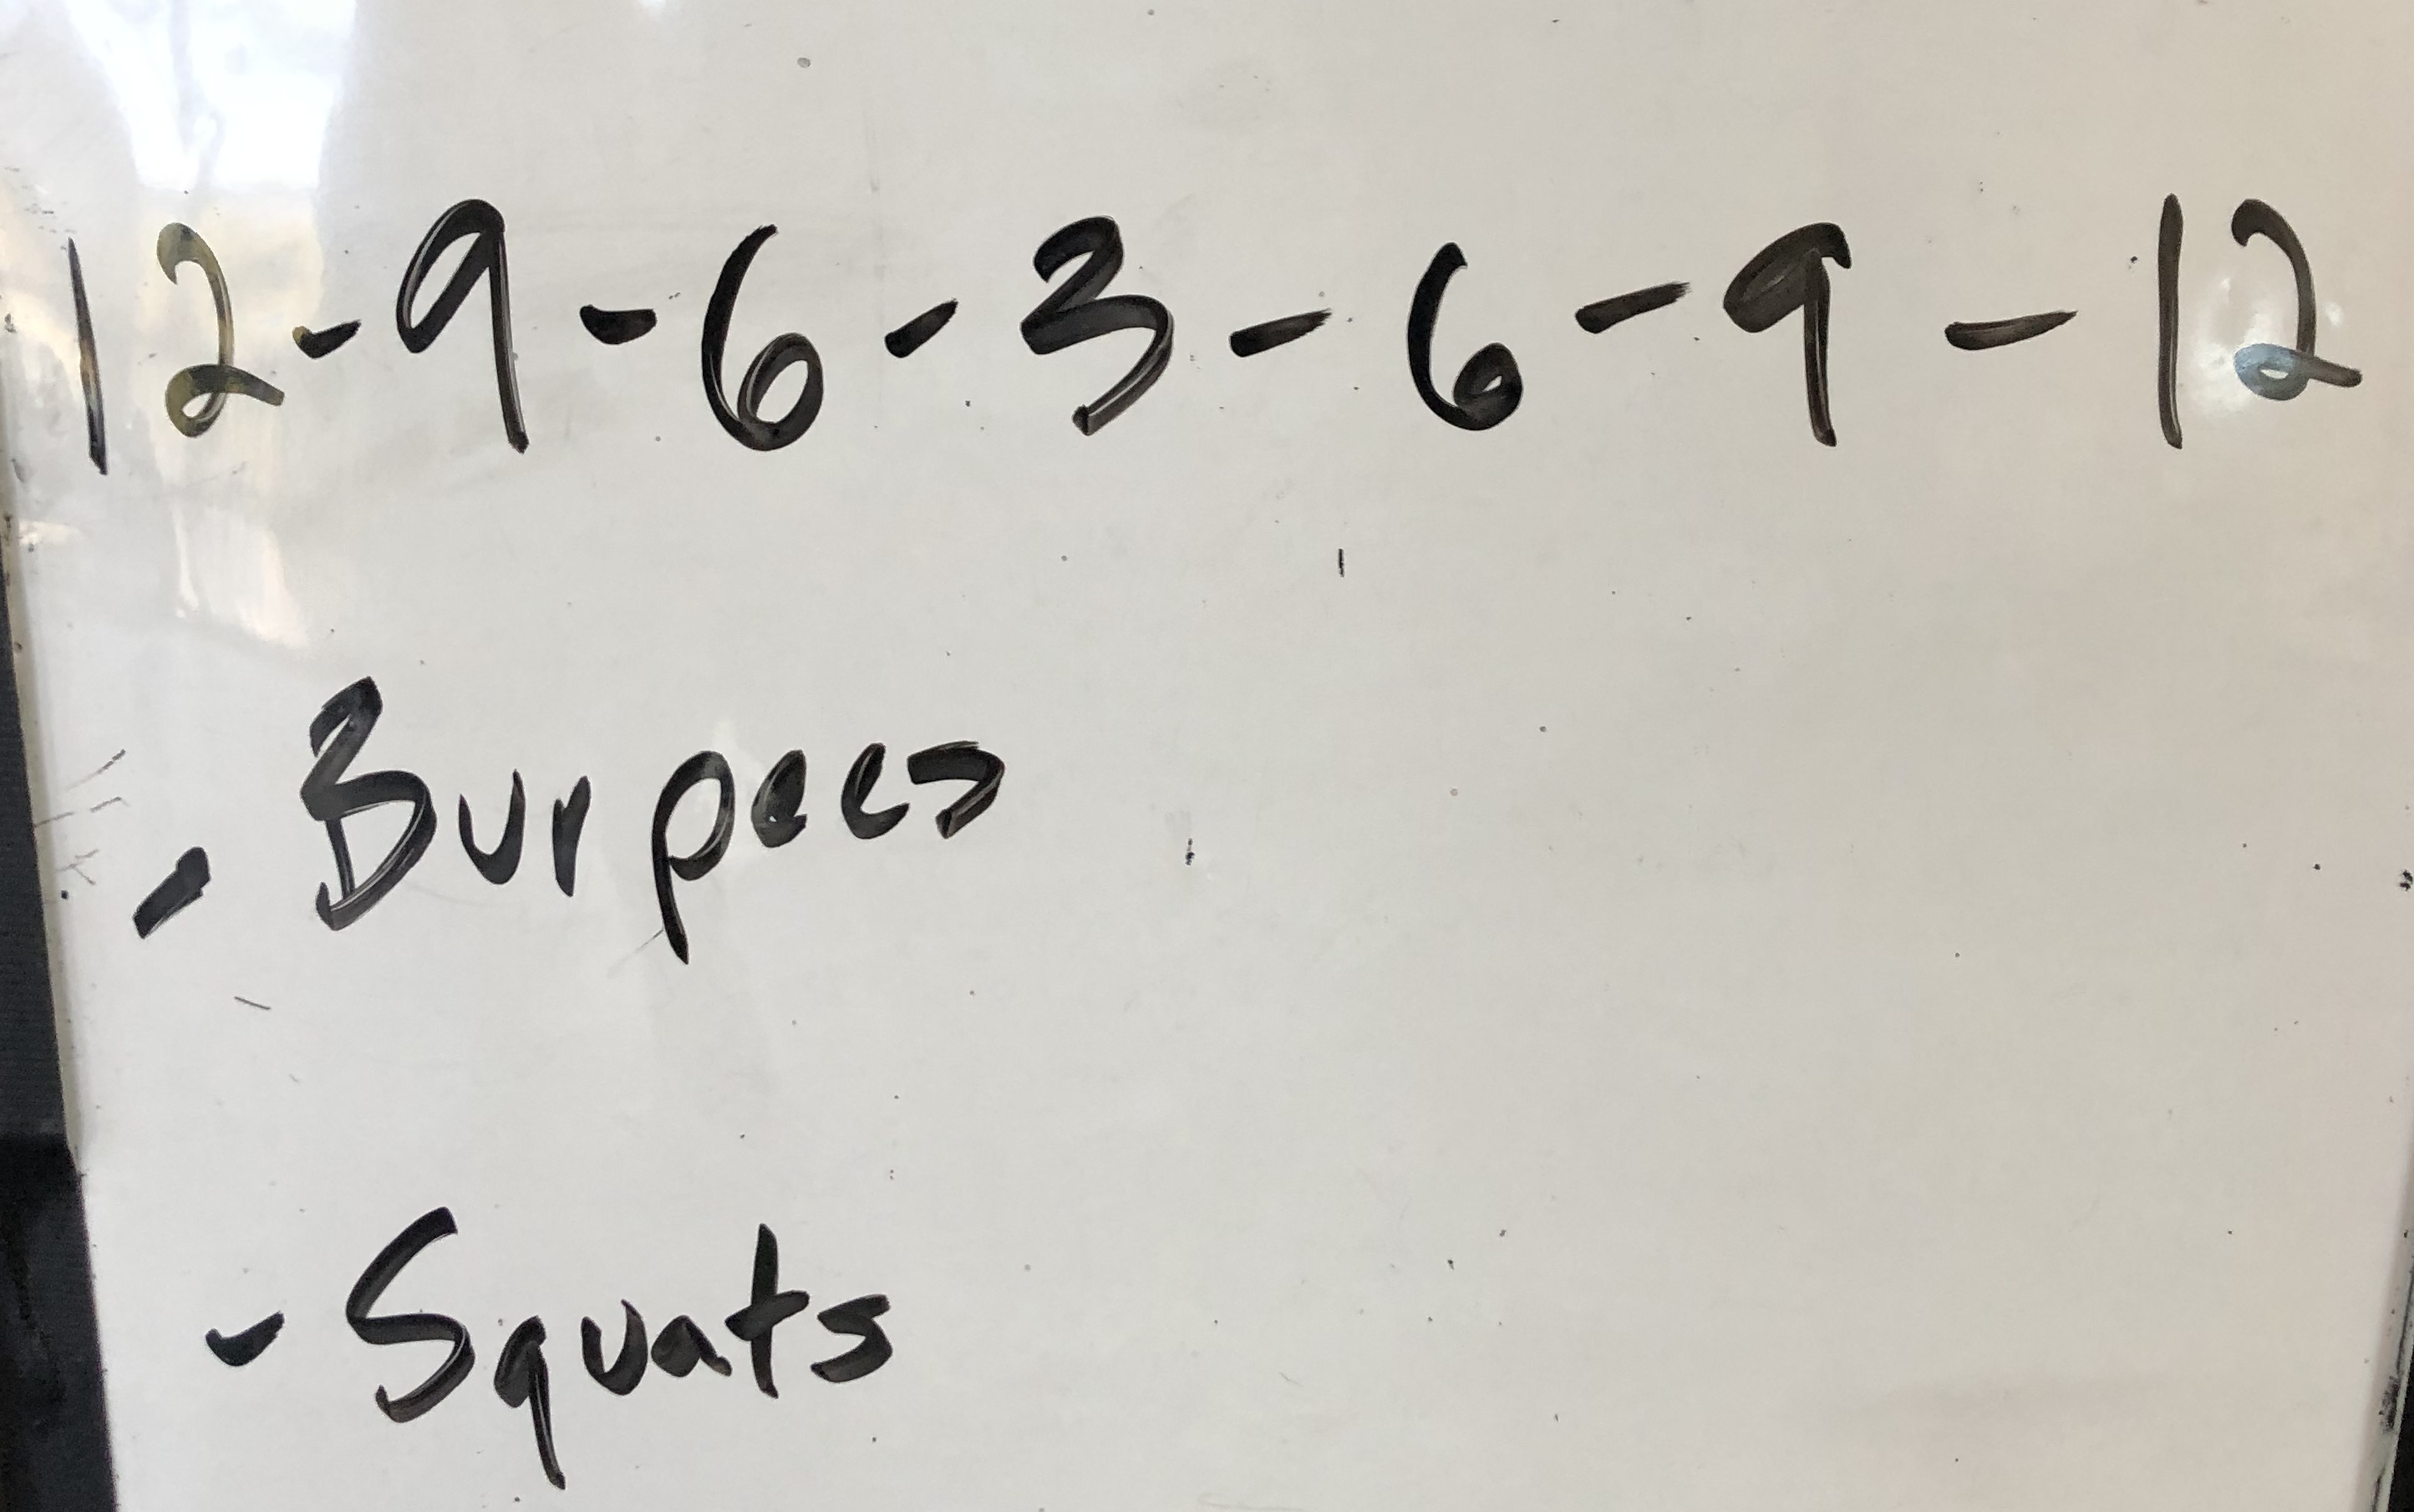 12-9-6-3-6-9-12
- Burpees
- Squats